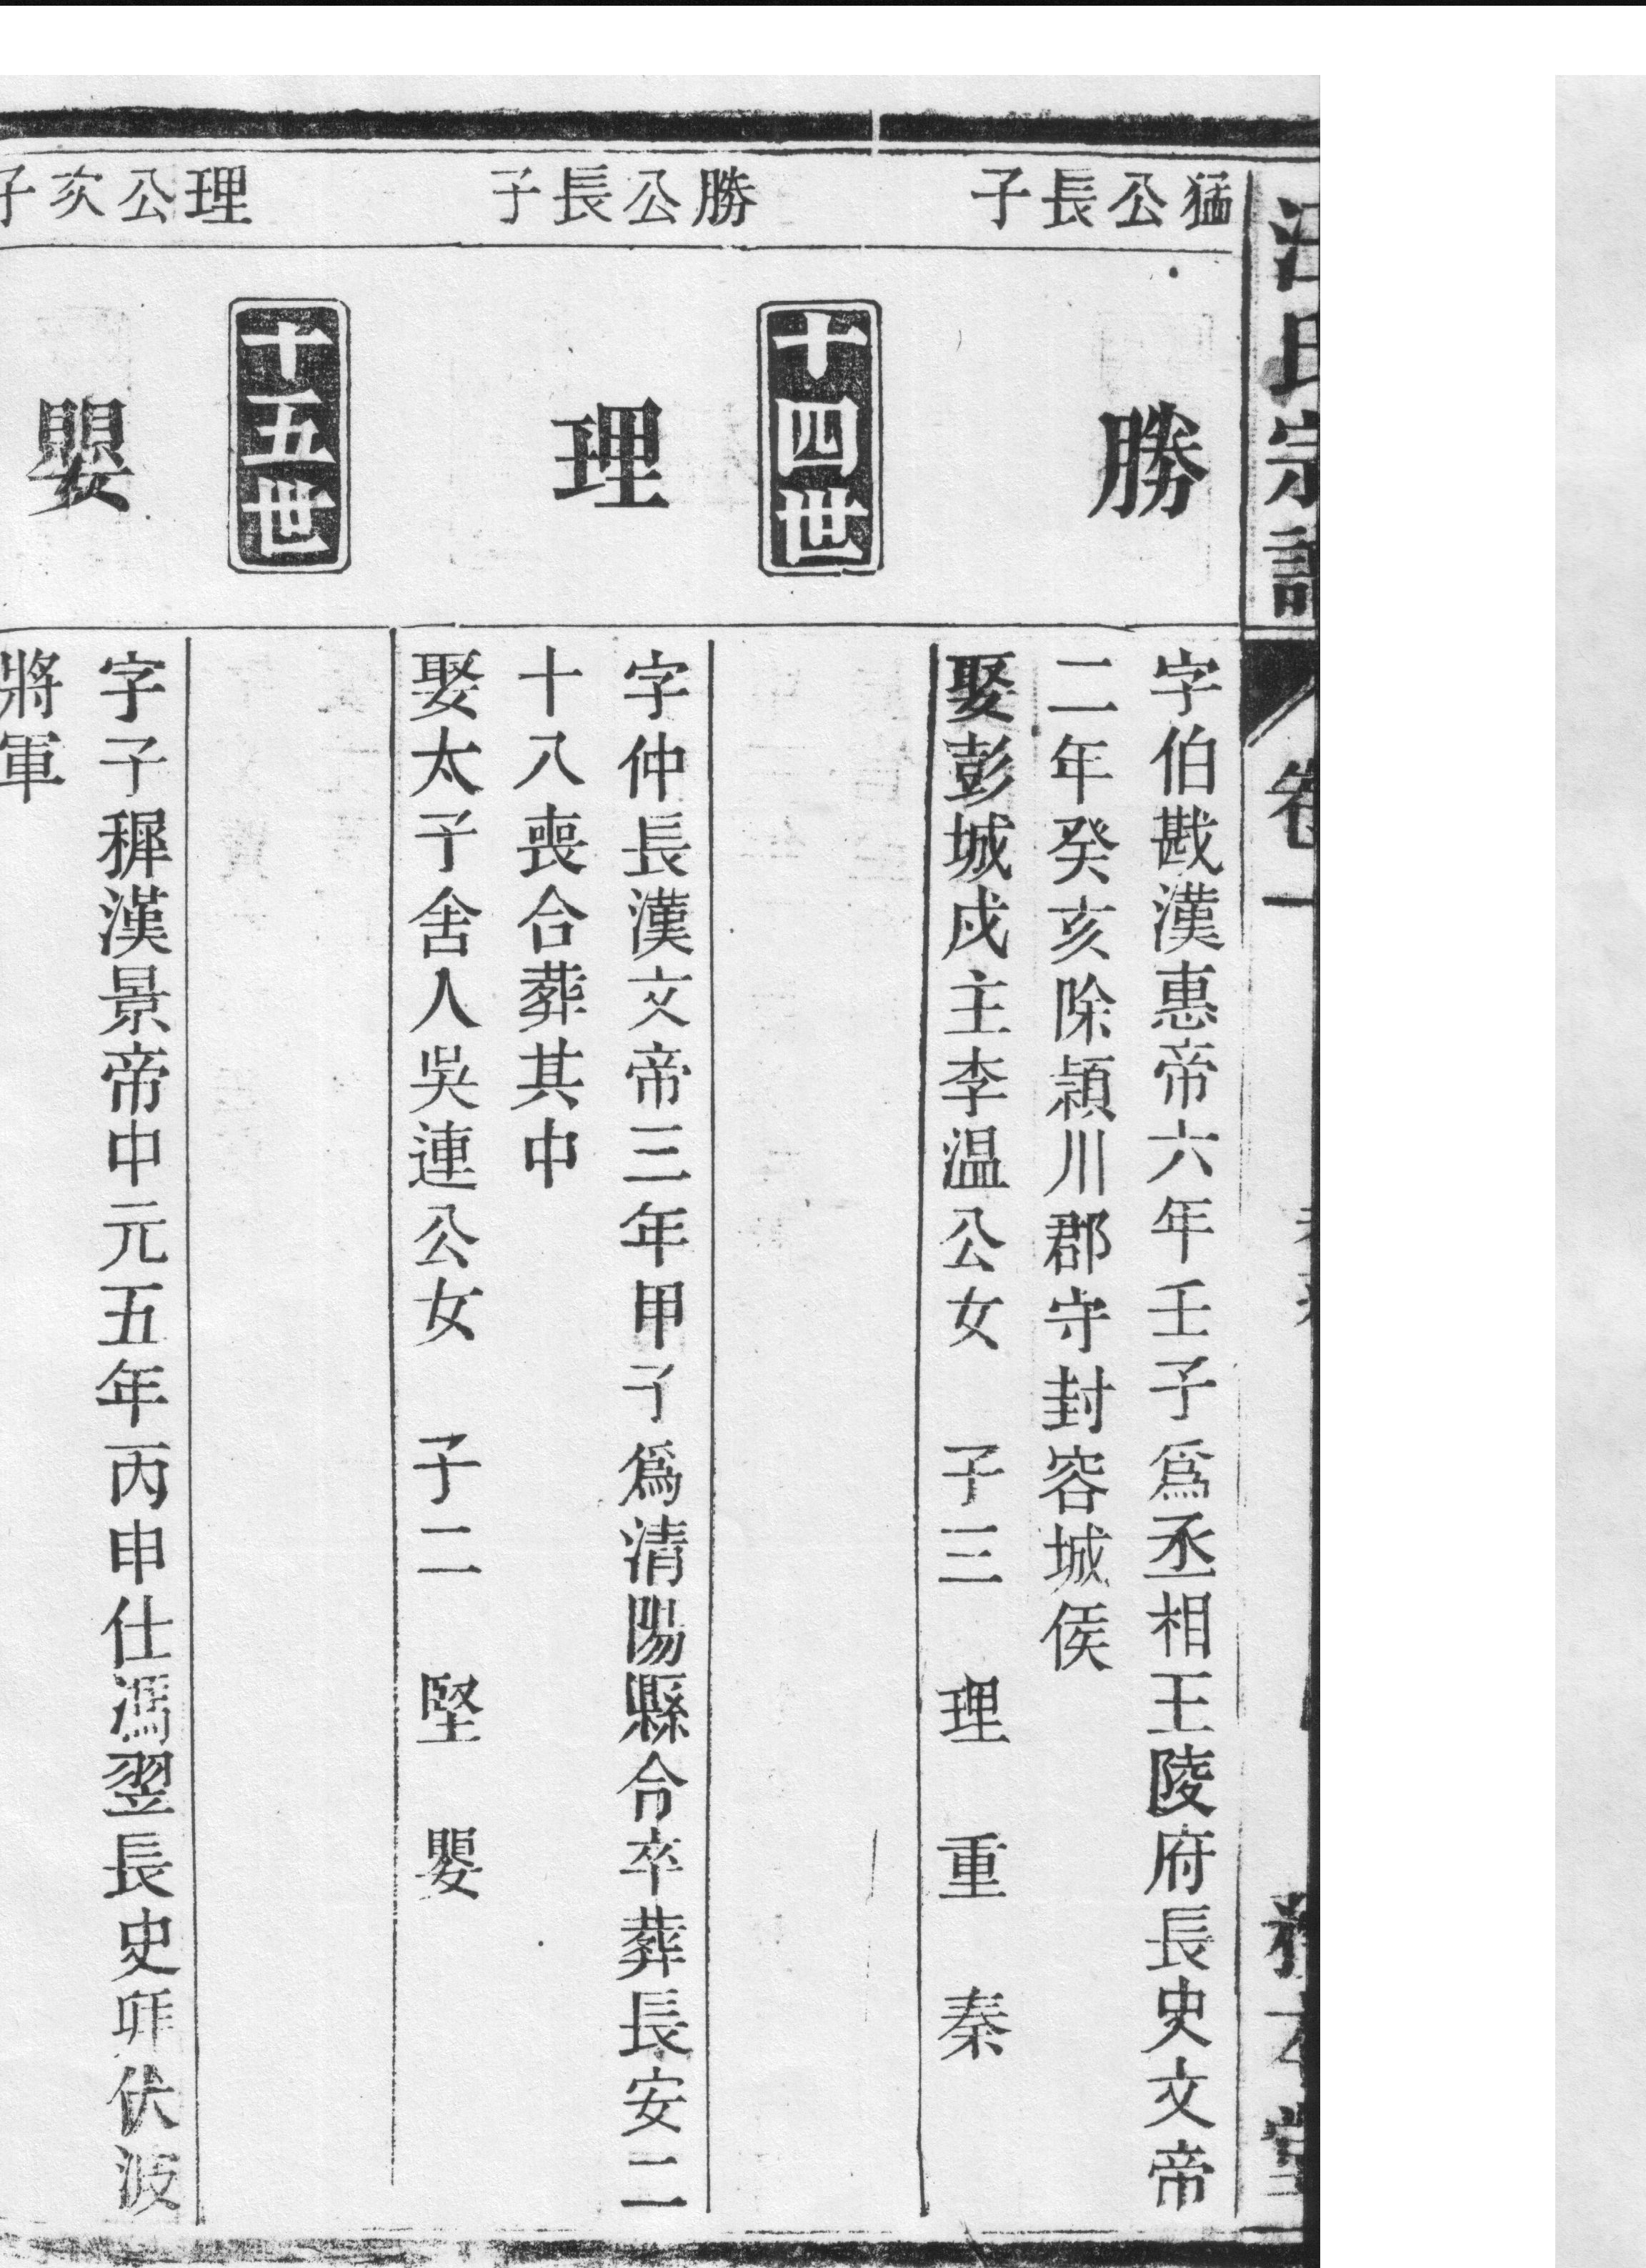 汪氏宗譜
卷一
猛公長子
勝
字伯戡漢惠帝六年壬子爲丞相王陵府長史文帝
二年癸亥除潁川郡守封容城侯
娶彭城戍主李温公女 子三 理 重 秦
十四世
勝公長子
理
字仲長漢文帝三年甲子爲清陽縣令卒葬長安二
十八喪合葬其中
娶太子舍人吳連公女 子二 堅 嬰
十五世
理公次子
嬰
字子穉漢景帝中元五年丙申仕馮翌長史拜伏波
將軍